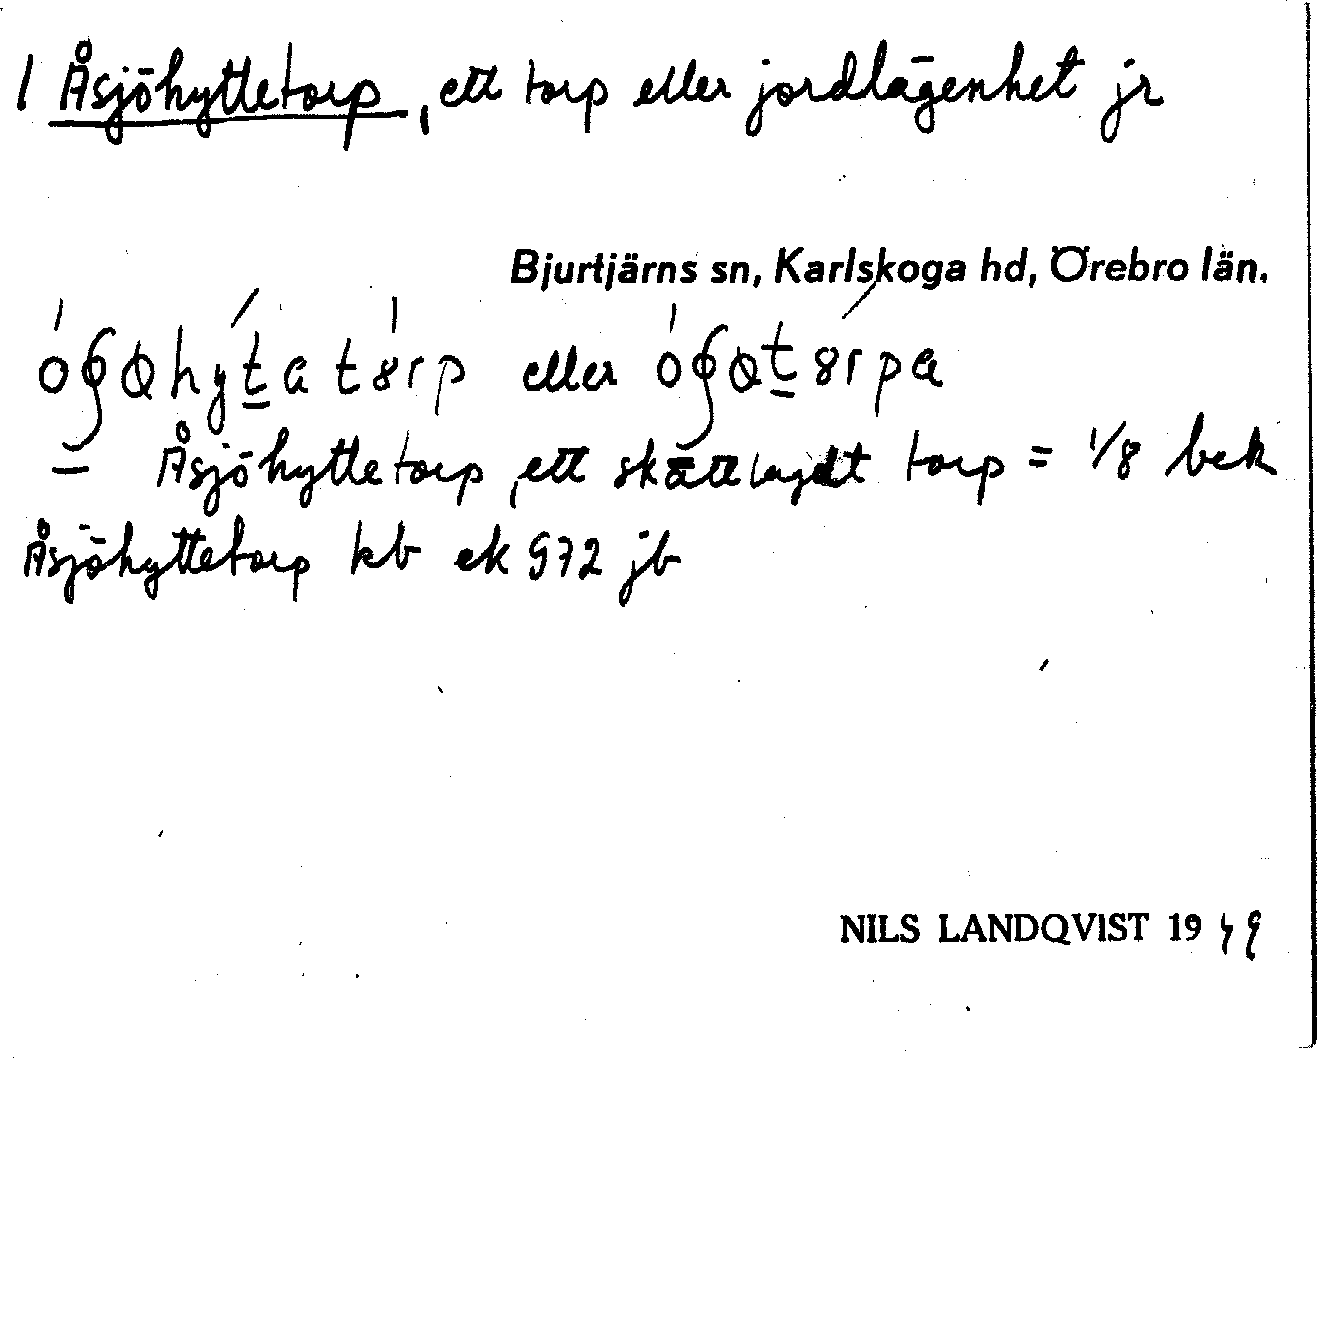 1 Åsjöhyttetorp, ett torp eller jordlägenhet jr
Bjurtjärns sn, Karlskoga hd, Örebro län.
eller
– Åsjöhyttetorp, ett skattlagdt torp = 1/8 bek
Åsjöhyttetorp kb ek 972 jb
NILS LANDQVIST 1949